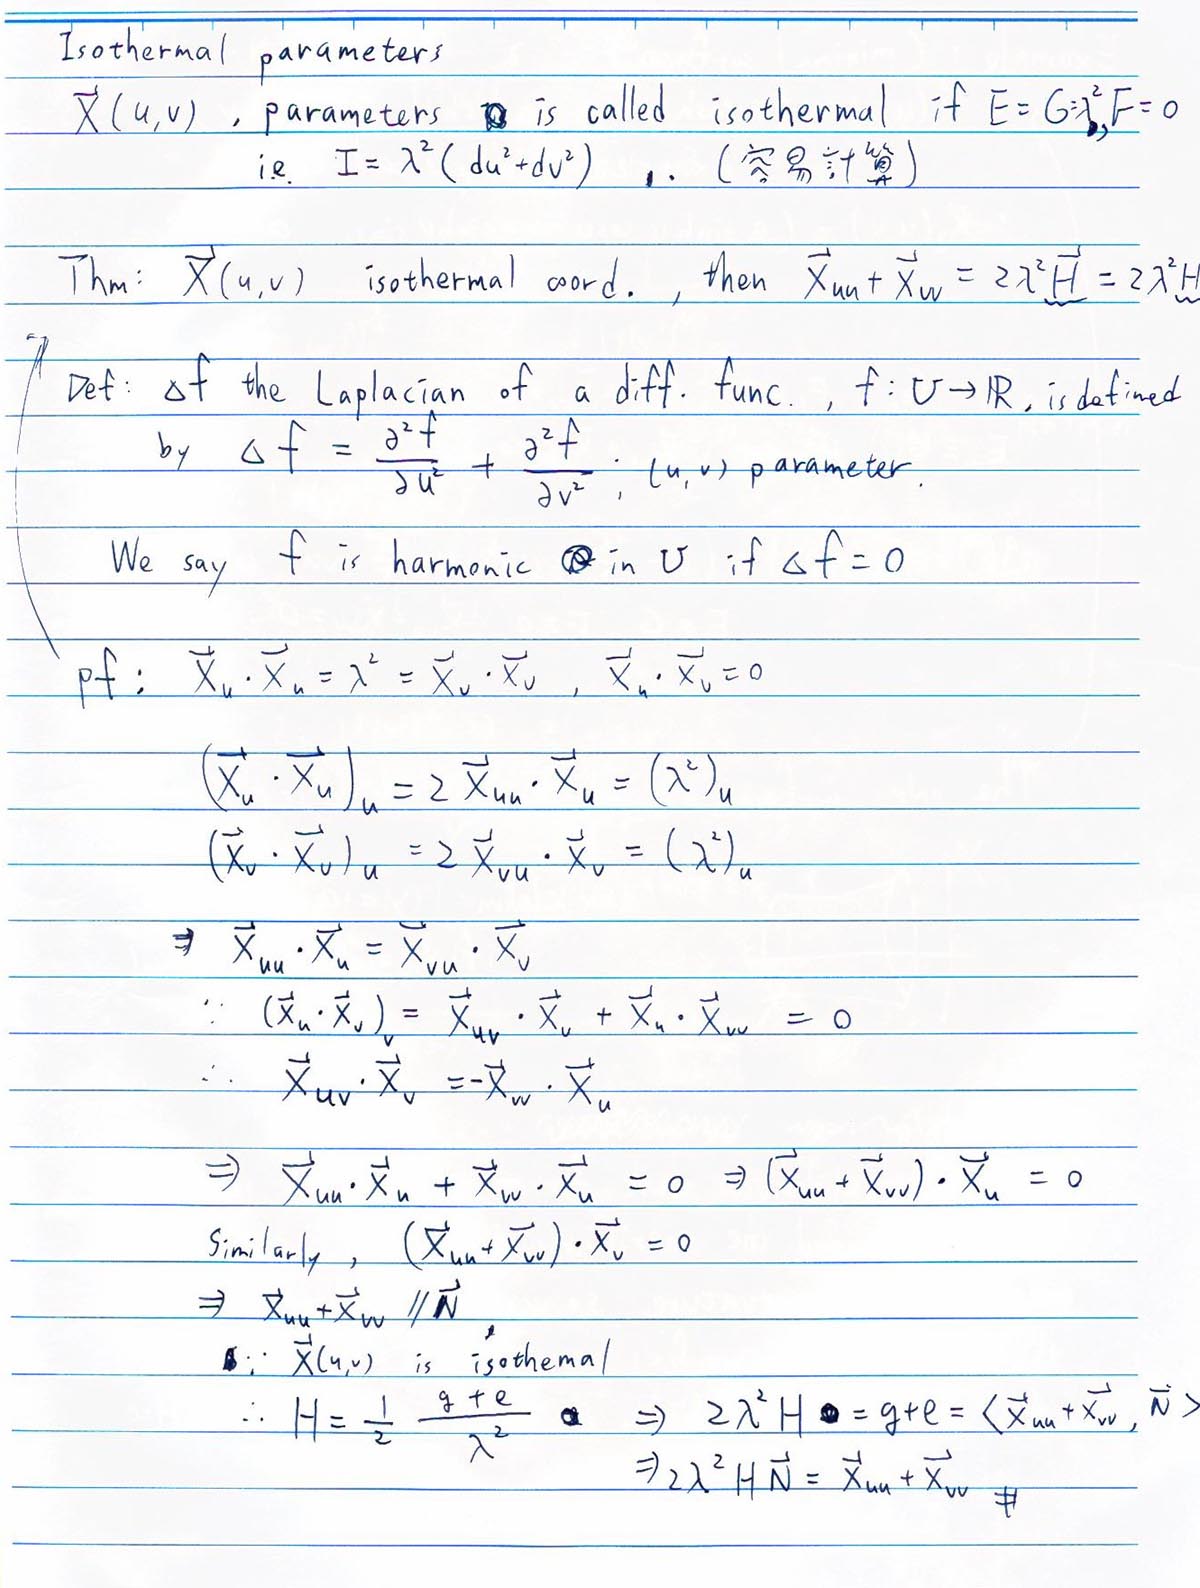 Isothermal parameters
X⃗(u,v), parameters is called isothermal if E=G=λ², F=0
i.e. I=λ²(du²+dv²) (容易計算)
Thm: X⃗(u,v) isothermal coord., then X⃗uu+X⃗vv = 2λ²H⃗ = 2λ²H
Def: △f the Laplacian of a diff. func., f:U→ℝ, is defined
by △f = ∂²f/∂u² + ∂²f/∂v², (u,v) parameter.
We say f is harmonic in U if △f=0
pf: X⃗u·X⃗u=λ²=X⃗v·X⃗v, X⃗u·X⃗v=0
(X⃗u·X⃗u)u = 2X⃗uu·X⃗u = (λ²)u
(X⃗v·X⃗v)u = 2X⃗vu·X⃗v = (λ²)u
⇒ X⃗uu·X⃗u = X⃗vu·X⃗v
∵ (X⃗u·X⃗v)v = X⃗uv·X⃗v + X⃗u·X⃗vv = 0
∴ X⃗uv·X⃗v = -X⃗vv·X⃗u
⇒ X⃗uu·X⃗u + X⃗vv·X⃗u = 0 ⇒ (X⃗uu+X⃗vv)·X⃗u = 0
Similarly, (X⃗uu+X⃗vv)·X⃗v = 0
⇒ X⃗uu+X⃗vv // N⃗,
∵ X⃗(u,v) is isothemal
∴ H = 1/2 (g+e)/λ² ⇒ 2λ²H = g+e = ⟨X⃗uu+X⃗vv, N⃗⟩
⇒ 2λ²HN⃗ = X⃗uu+X⃗vv #